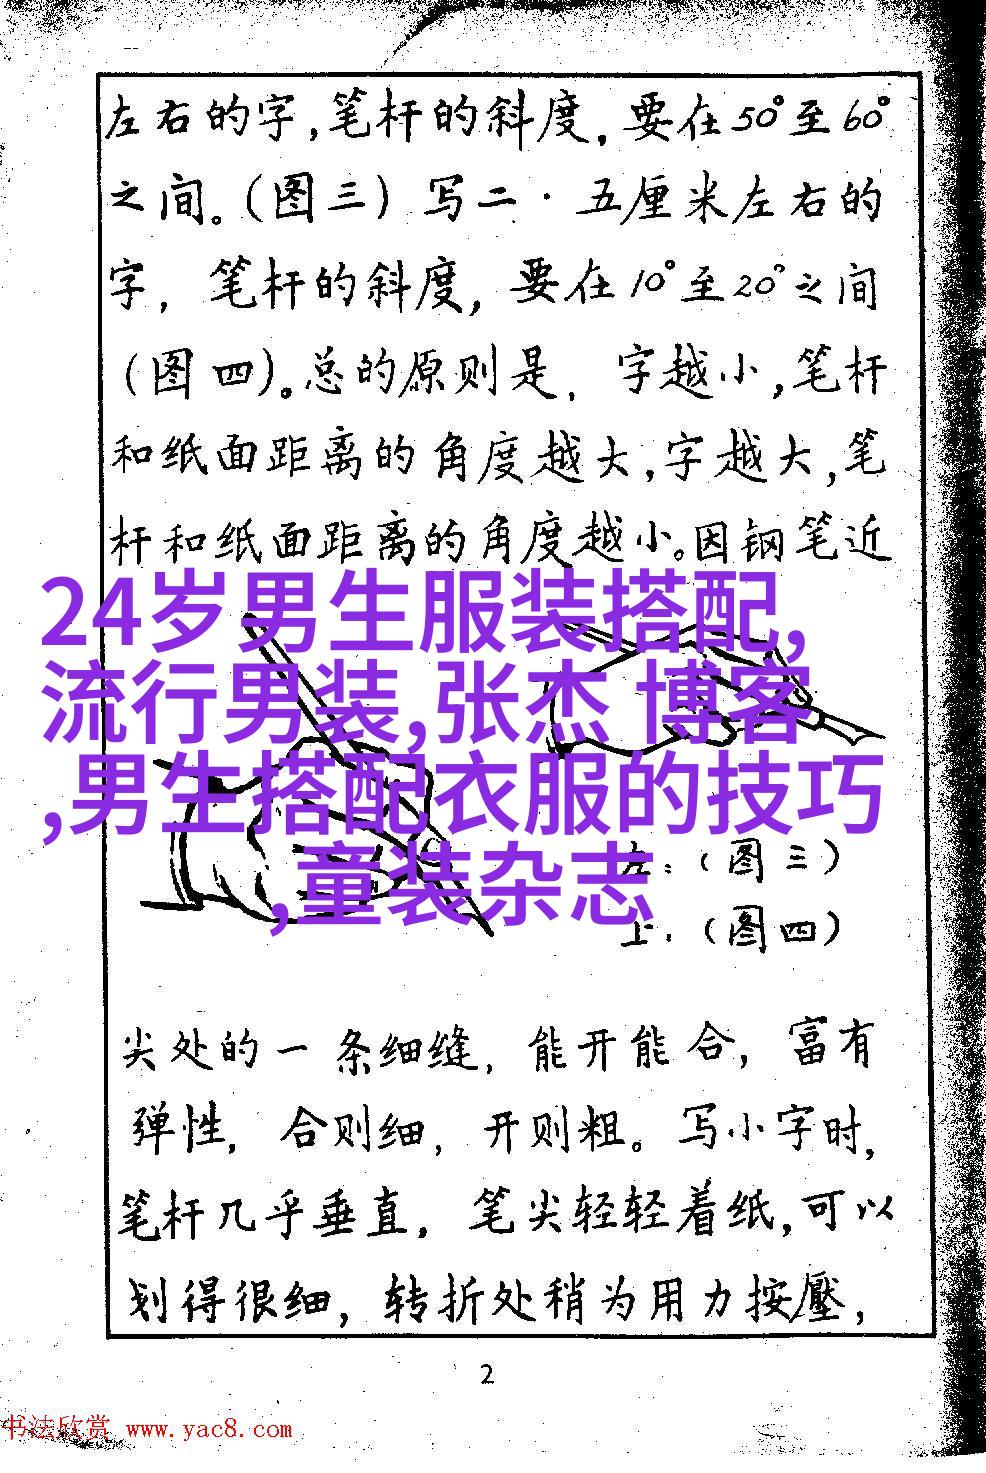 左右的字,笔杆的斜度,要在50°至60°
之间。(图三)写二·五厘米左右的
字,笔杆的斜度,要在10°至20°之间
(图四)。总的原则是,字越小,笔杆
和纸面距离的角度越大,字越大,笔
杆和纸面距离的角度越小。因钢笔近
24岁男生服装搭配,
流行男装,张杰 博客
,男生搭配衣服的技巧
,童装杂志
左:(图三)
上:(图四)
尖处的一条细缝,能开能合,富有
弹性,合则细,开则粗。写小字时,
笔杆几乎垂直,笔尖轻轻着纸,可以
划得很细,转折处稍为用力按壓,
2
书法欣赏 www.yac8.com